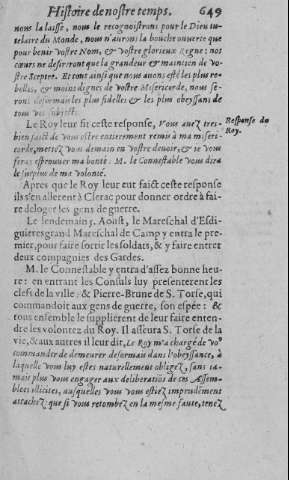 Histoire de nostre temps. 649
nous la laisse, nous le recognoistrons pour le Dieu tu-
telaire du Monde, nous n'aurons la bouche ouverte que
pour benir vostre Nom, & vostre glorieux regne: nos
cœurs ne desireront que la grandeur & maintien de vo-
stre Sceptre. Et tout ainsi que nous avons esté les plus re-
belles, & moins dignes de vostre Misericorde, nous se-
rons desormais les plus fidelles & les plus obeyssans de
tous vos subjects.
Le Roy leur fit ceste response, Vous avez tres-
bien faict de vous estre entierement remis à ma miseri-
corde, mettez vous demain en vostre devoir, & je vous
feray esprouver ma bonté: M. le Connestable vous dira
le surplus de ma volonté.
Response du
Roy.
Apres que le Roy leur eut faict ceste response
ils s'en allerent à Clerac pour donner ordre à fai-
re desloger les gens de guerre.
Le lendemain 5. Aoust, le Mareschal d'Esdi-
guieres grand Mareschal de Camp y entra le pre-
mier, pour faire sortir les soldats, & y faire entrer
deux compagnies des Gardes.
M. le Connestable y entra d'assez bonne heu-
re: en entrant les Consuls luy presenterent les
clefs de la ville; & Pierre-Brune de S. Torse, qui
commandoit aux gens de guerre, son espée: &
tous ensemble le supplierent de leur faire enten-
dre les volontez du Roy. Il asseura S. Torse de la
vie, & aux autres il leur dit, Le Roy m'a chargé de vo'
commander de demeurer desormais dans l'obeyssance, à
laquelle vous luy estes naturellement obligez, sans ja-
mais plus vous engager aux deliberatiōs de ces Assem-
blees illicites, ausquelles vous vous estiez imprudēment
attachez: que si vous retombez en la mesme faute, tenez